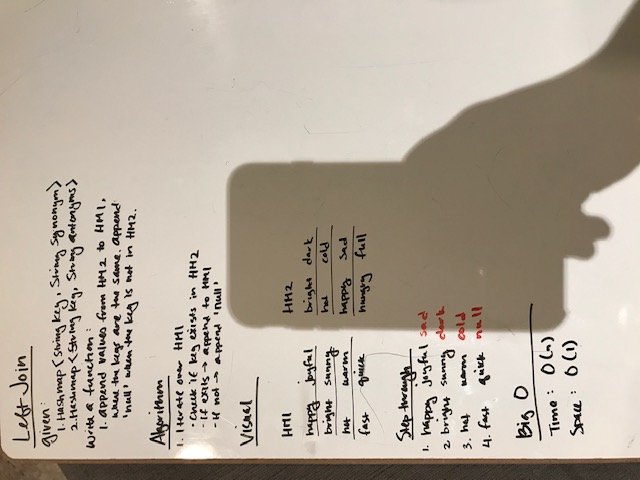 Left Join
given:
1. Hashmap <String key, String synonym>
2. Hashmap <String key, String antonyms>
Write a function:
1. append values from HM2 to HM1,
where the keys are the same. append
'null' when the key is not in HM2.
Algorithm
1. Iterate over HM1
- Check if key exists in HM2
- If exits → append to HM1
- If not → append 'null'
Visual
HM1 HM2
happy joyful bright dark
bright sunny hot cold
hot warm happy sad
fast quick hungry full
Step through
1. happy joyful sad
2. bright sunny dark
3. hot warm cold
4. fast quick null
Big O
Time: O(n)
Space: O(1)